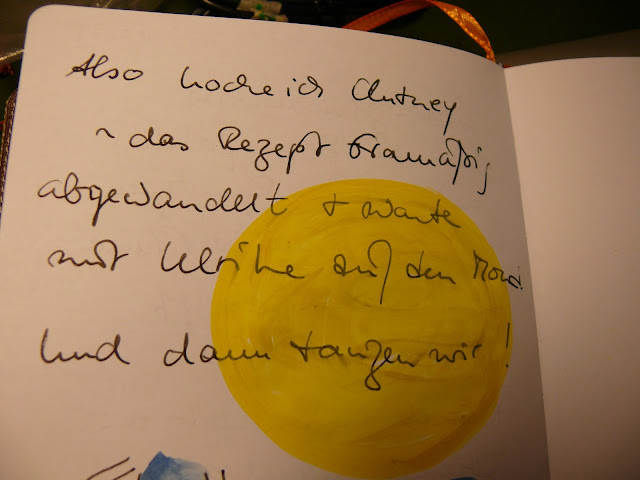 Also koche ich Chutney
~ das Rezept
abgewandelt + warte
mit Ulrike auf den Mond.
Und dann tanzen wir!